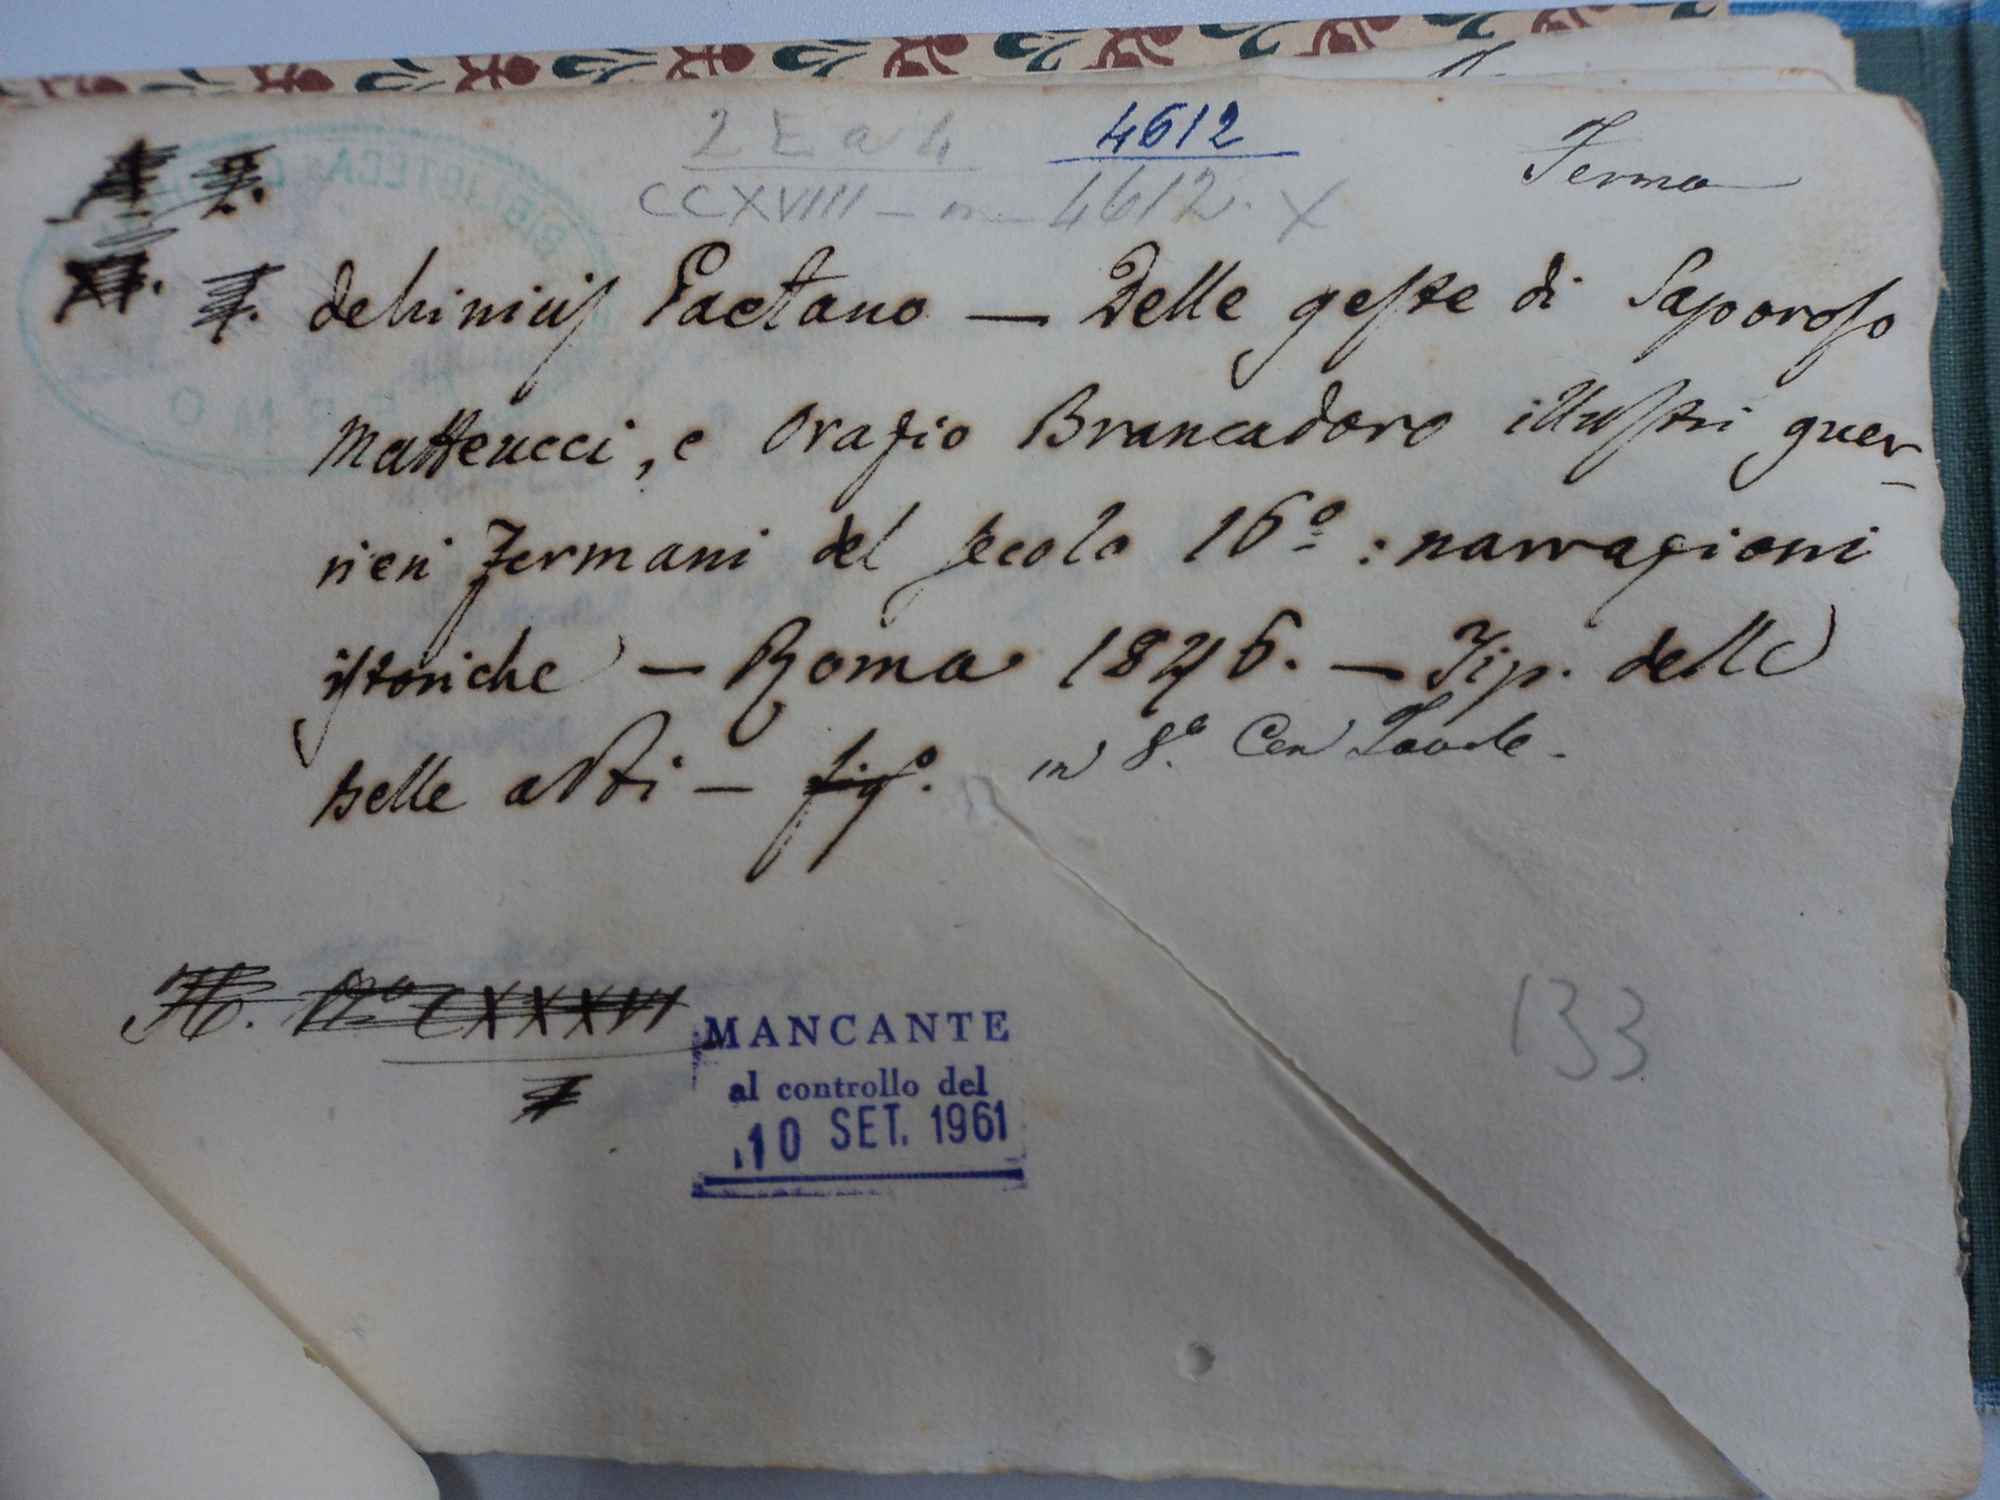 2 E a 4 4612 Fermo
CCXVIII - n - 4612. X
deminicis Gaetano — Delle geste di Saporoso
Matteucci, e Orazio Brancadoro illustri guer-
rieri Fermani del secolo 16º : narrazioni
istoriche — Roma 1846. — Tip. delle
belle arti — figº. in 8º. Con Tavole.
H. Nº CXXXVI
MANCANTE
al controllo del
10 SET. 1961
133